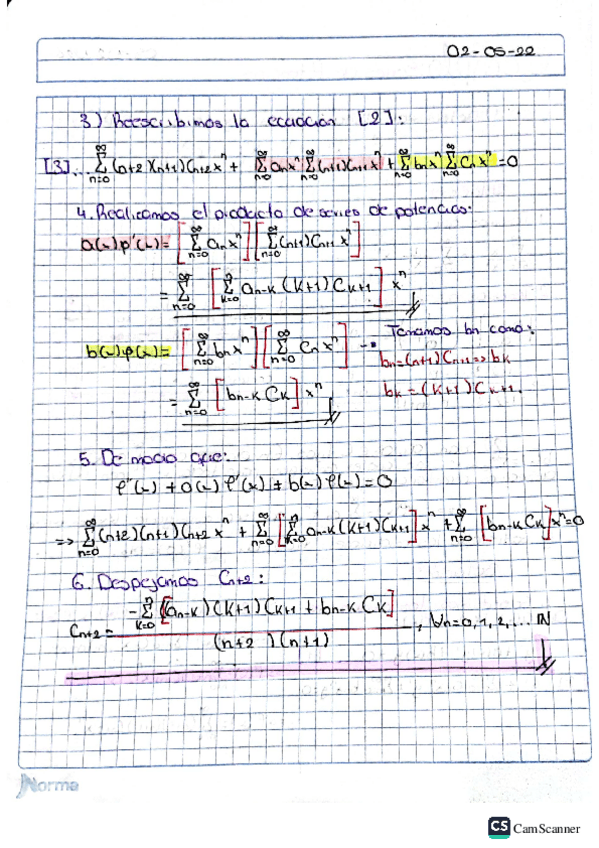 02-05-22
3) Reescribimos la ecuacion [2]:
[3]... ∑_{n=0}^{∞} (n+2)(n+1)C_{n+2}x^n + ∑_{n=0}^{∞} a_n x^n ∑_{n=0}^{∞} (n+1)C_{n+1}x^n + ∑_{n=0}^{∞} b_n x^n ∑_{n=0}^{∞} C_n x^n = 0
4. Realizamos el producto de series de potencias:
a(x)φ'(x) = [∑_{n=0}^{∞} a_n x^n] [∑_{n=0}^{∞} (n+1)C_{n+1} x^n]
= ∑_{n=0}^{∞} [∑_{k=0}^{n} a_{n-k} (k+1) C_{k+1}] x^n
b(x)φ(x) = [∑_{n=0}^{∞} b_n x^n] [∑_{n=0}^{∞} C_n x^n] → Tenemos bn como:
b_n = (n+1)C_{n+1} => b_k
= ∑_{n=0}^{∞} [b_{n-k} C_k] x^n
b_k = (k+1)C_{k+1}.
5. De modo que:
φ''(x) + a(x) φ'(x) + b(x) φ(x) = 0
=> ∑_{n=0}^{∞} (n+2)(n+1)C_{n+2} x^n + ∑_{n=0}^{∞} [∑_{k=0}^{n} a_{n-k}(k+1)C_{k+1}] x^n + ∑_{n=0}^{∞} [b_{n-k}C_k] x^n = 0
6. Despejamos C_{n+2}:
C_{n+2} = \frac{-∑_{k=0}^{n} [(a_{n-k})(k+1)C_{k+1} + b_{n-k} C_k]}{(n+2)(n+1)}, ∀n=0,1,2,... IN
Norma
CS CamScanner